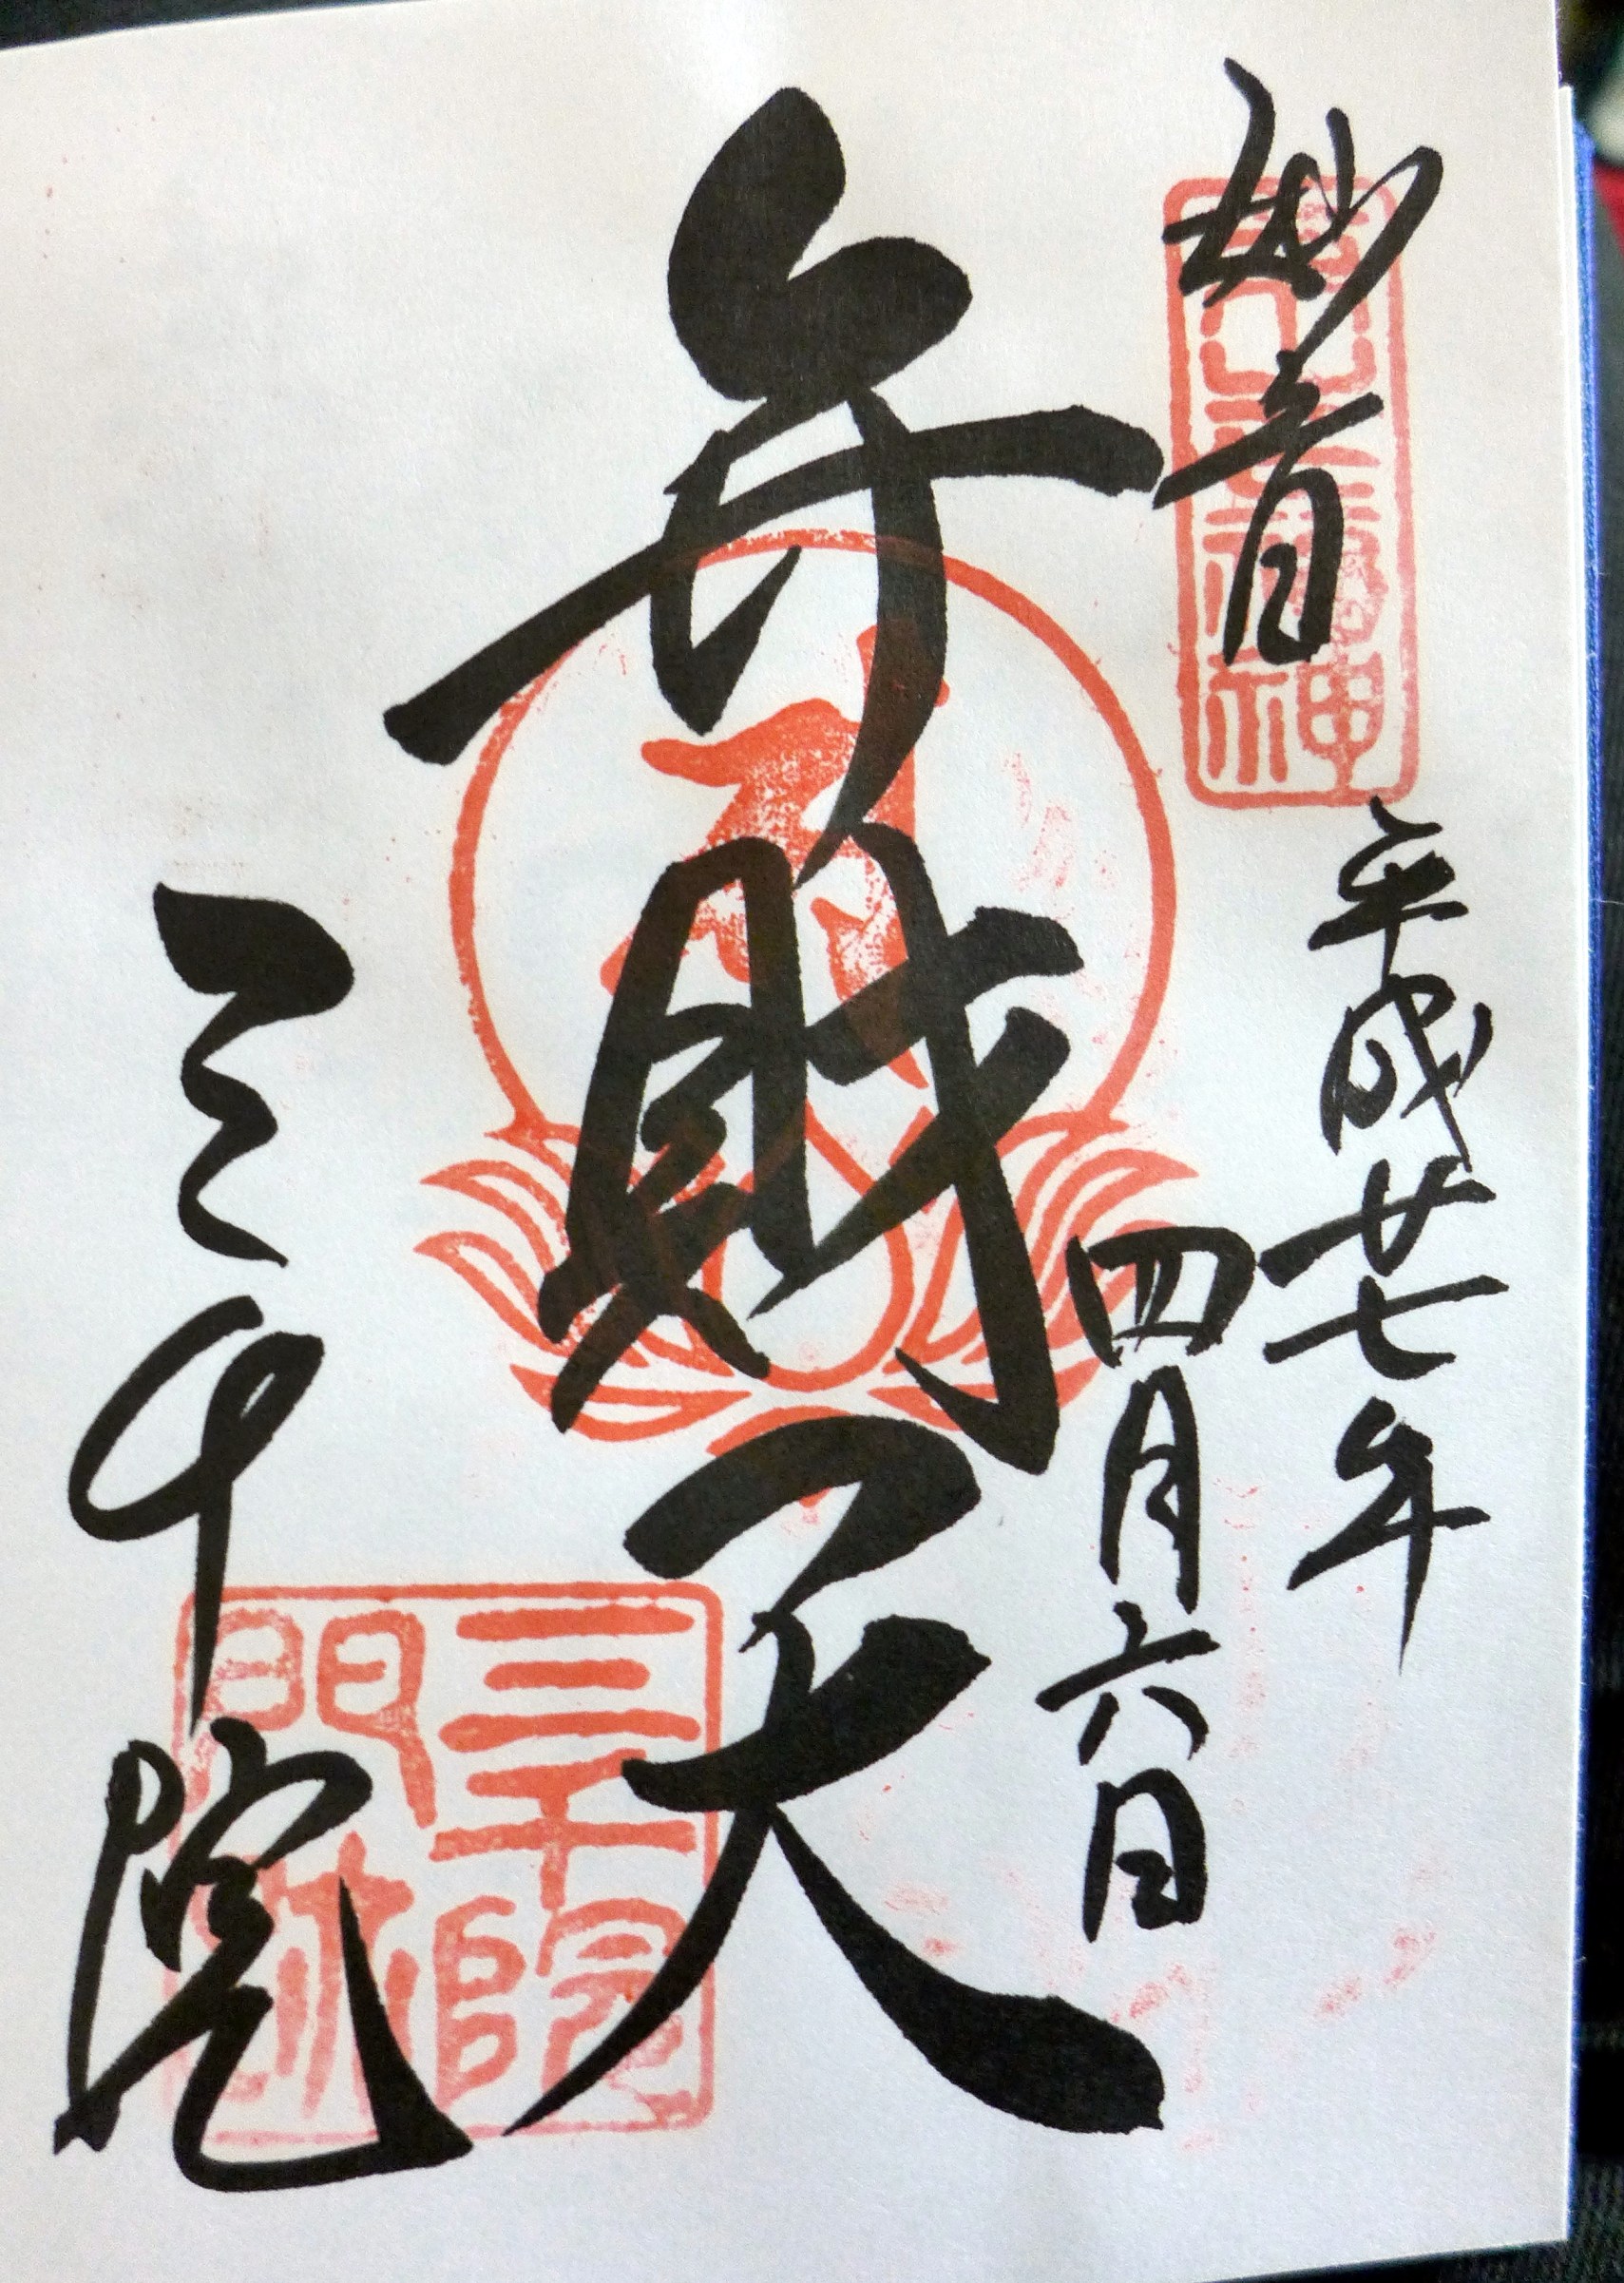 妙音
平成廿七年
四月六日
弁財天
三千院
三千院
門跡